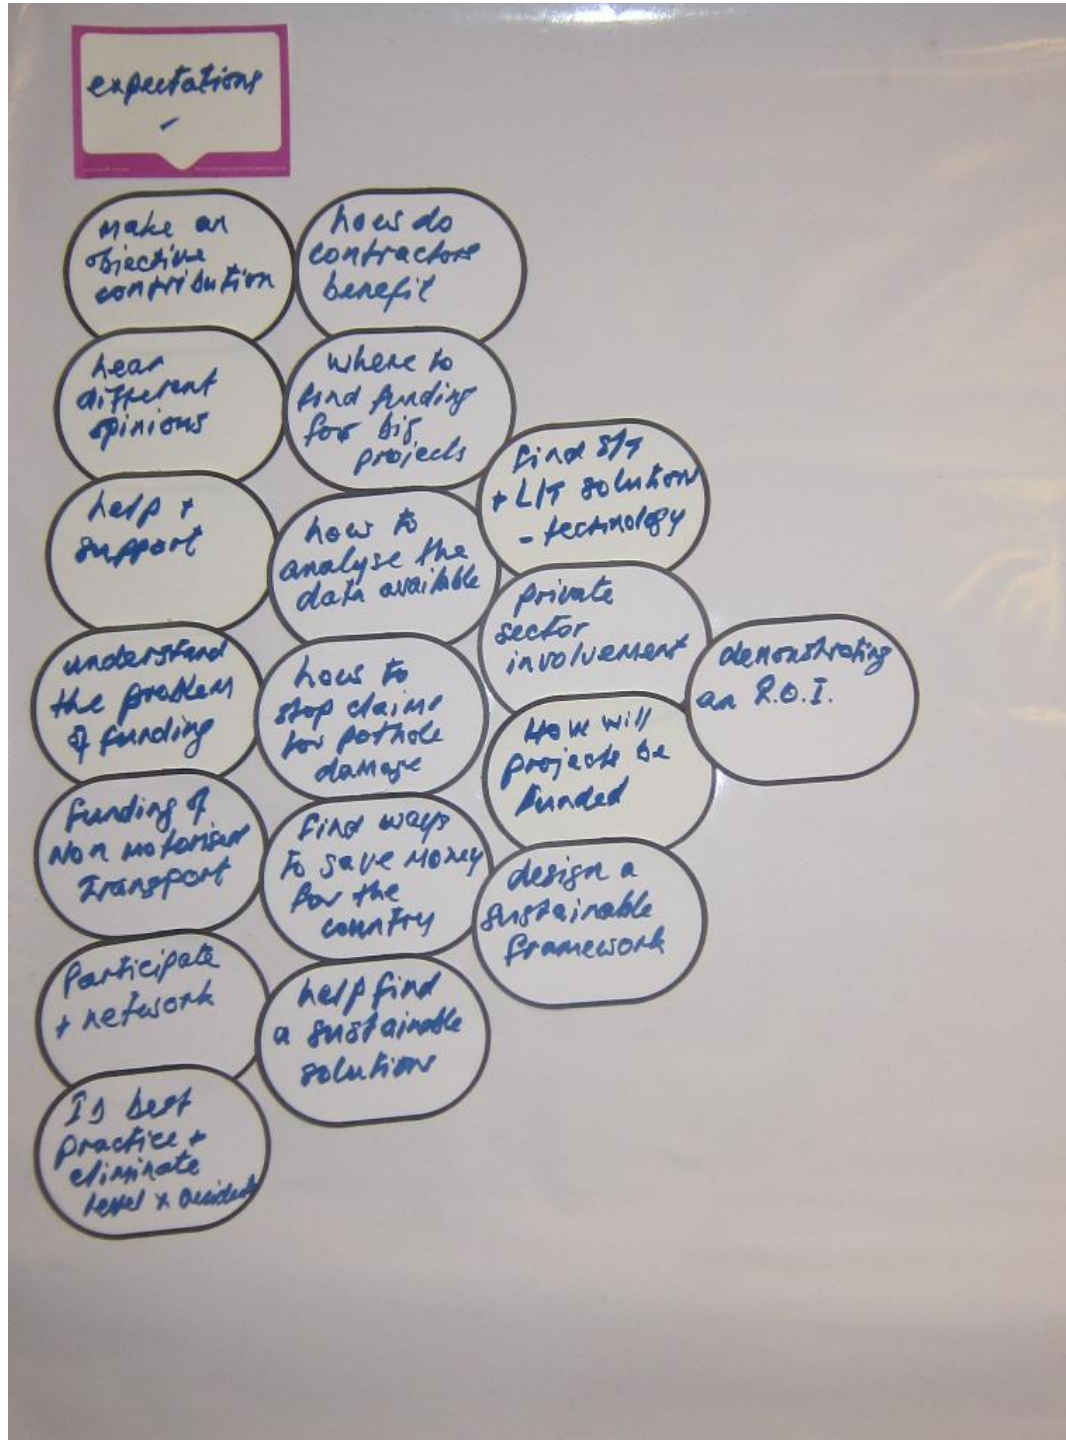 expectations
make an
objective
contribution
hear
different
opinions
help +
support
understand
the problem
of funding
Funding of
Non motorised
Transport
Participate
+ network
ID best
practice +
eliminate
level x
how do
contractors
benefit
where to
find funding
for big
projects
how to
analyse the
data available
how to
stop claims
for pothole
damage
find ways
to save money
for the
country
help find
a sustainable
solution
find S/T
+ L/T solution
- technology
private
sector
involvement
How will
projects be
funded
design a
sustainable
framework
demonstrating
an R.O.I.